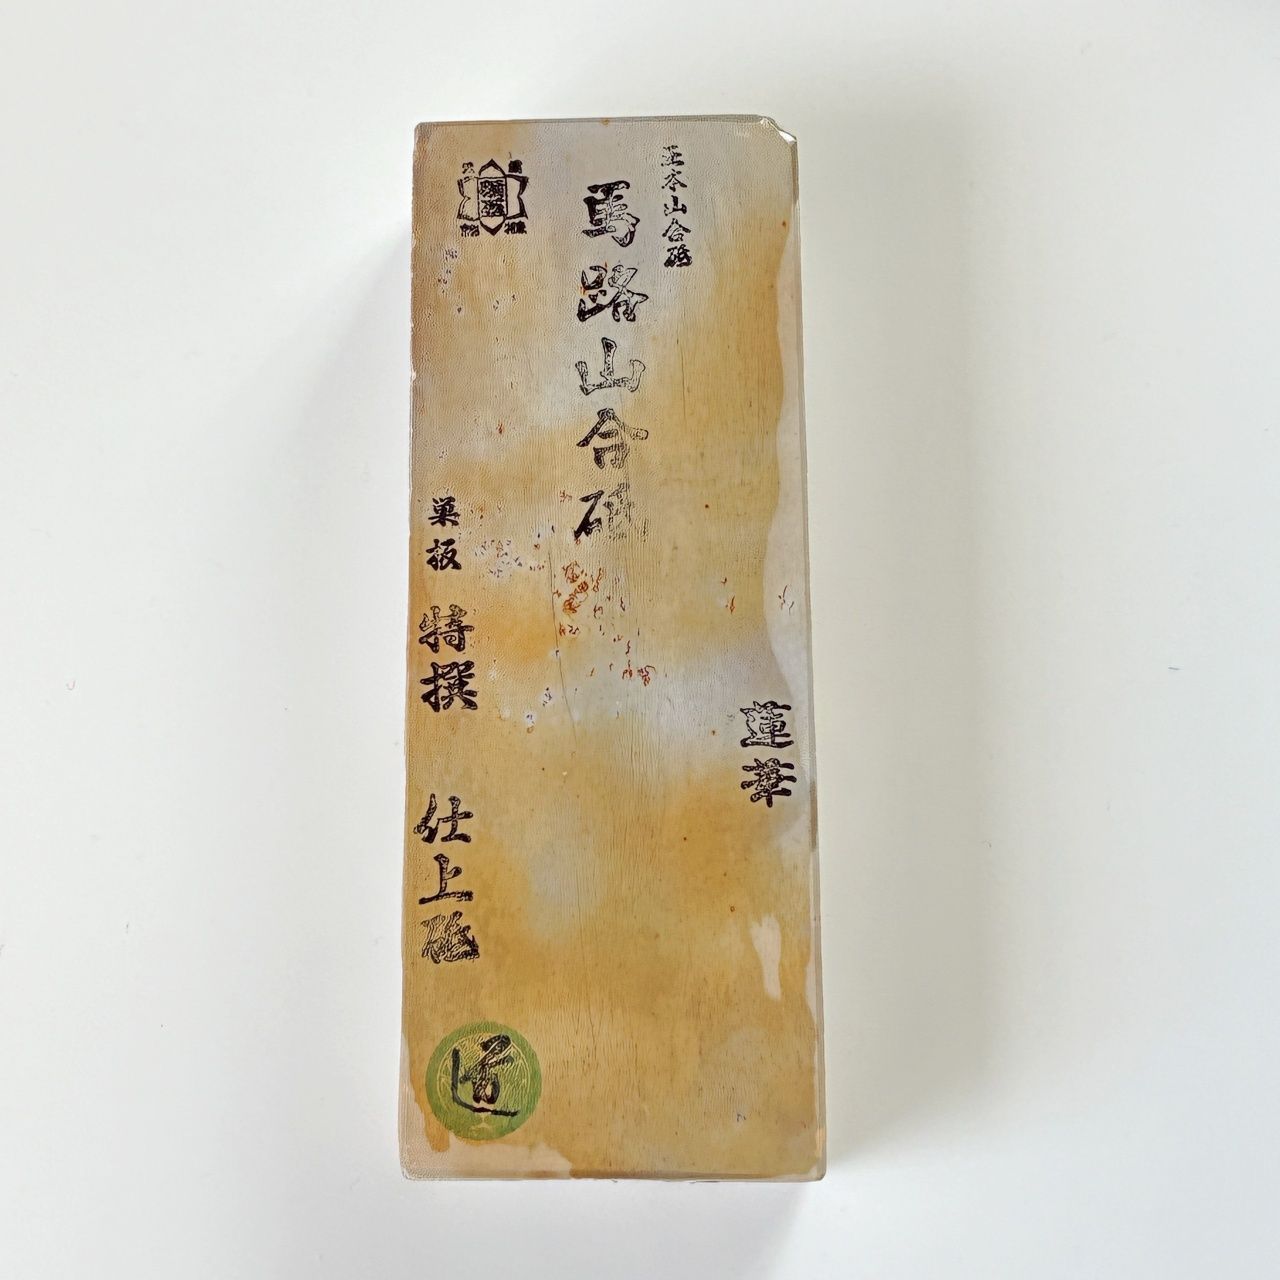 正本山合砥
馬路山合砥
巣板
特撰
仕上砥
蓮華